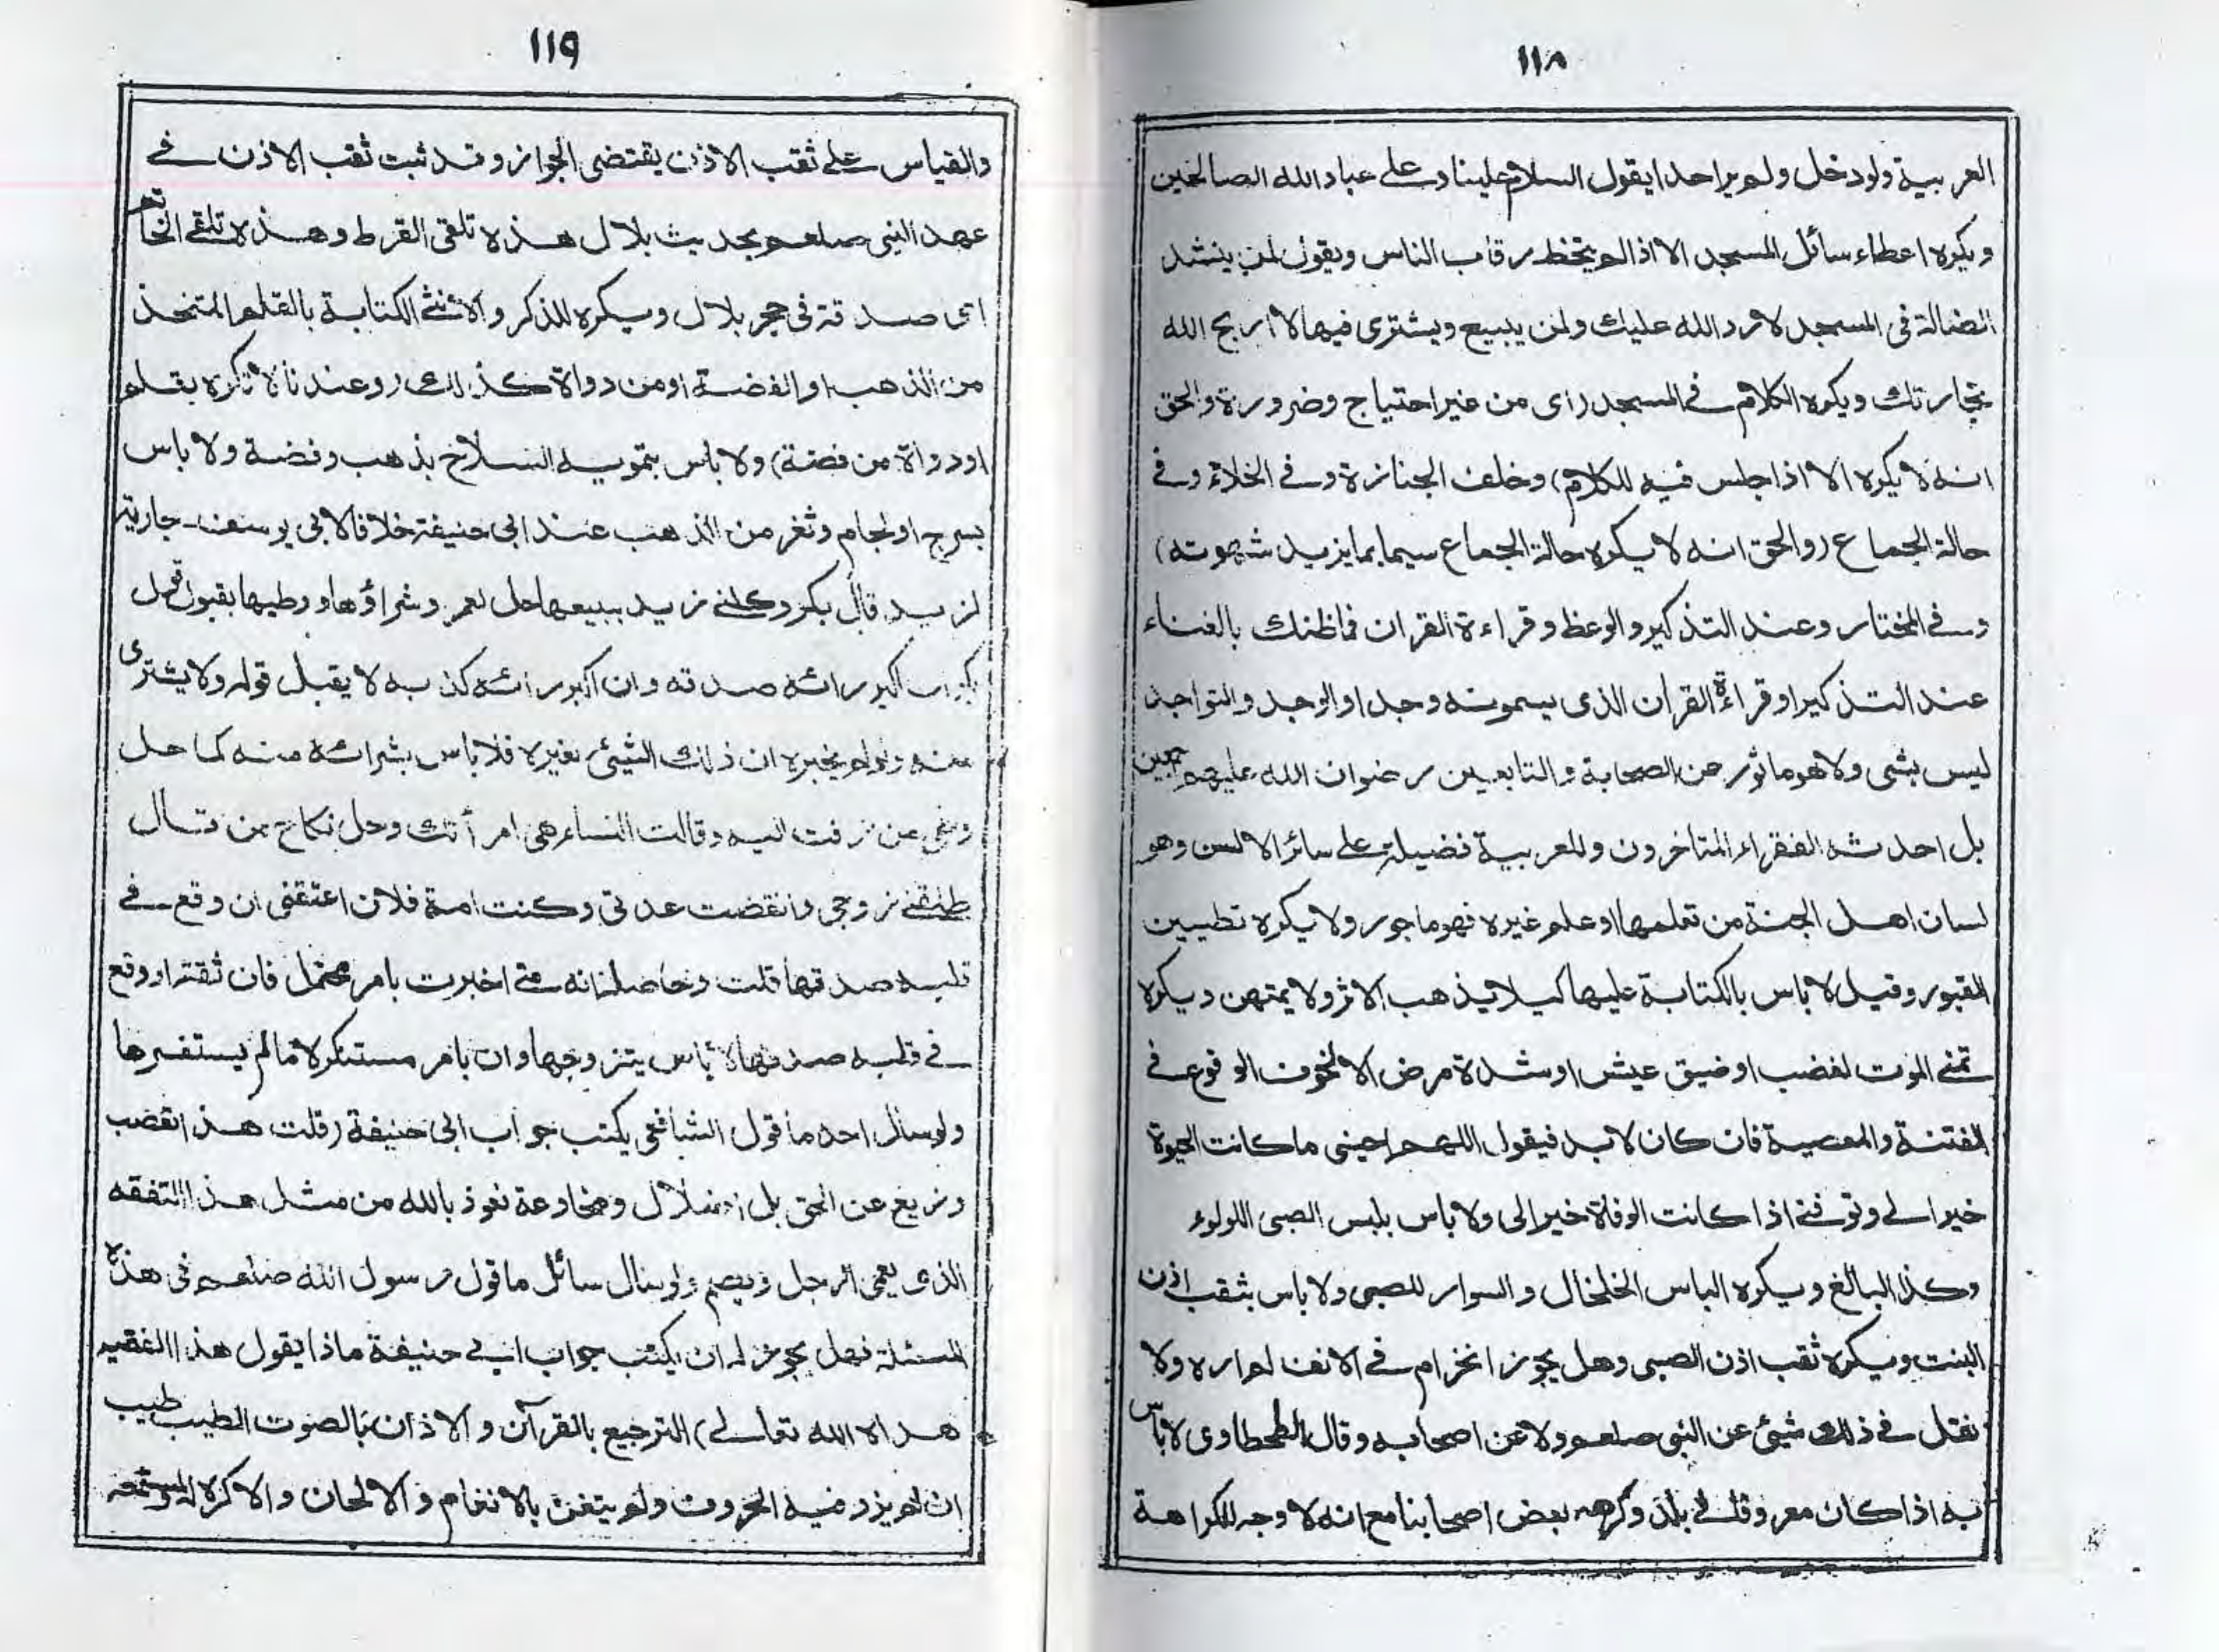 ١١٨
العربية ولو دخل ولم ير احدا يقول السلام علينا وعلى عباد الله الصالحين
ويكره اعطاء سائل المسجد الا اذا لم يتخط رقاب الناس ويقول لمن ينشد
الضالة فى المسجد لا رد الله عليك ولمن يبيع ويشترى فيها لا اربح الله
تجارتك ويكره الكلام فى المسجد (اى من غير احتياج وضرورة والحق
انه لا يكره الا اذا جلس فيه للكلام) وخلف الجنازة وفى الخلاء وفى
حالة الجماع (والحق انه لا يكره حالة الجماع سيما بما يزيد شهوته)
وفى المختار وعند التذكير والوعظ وقراءة القران فما ظنك بالغناء
عند التذكير او قراءة القرآن الذى يسمونه وجدا والوجد والتواجد
ليس بشى ولا هو ماثور عن الصحابة والتابعين رضوان الله عليهم اجمعين
بل احدثه الفقراء المتاخرون وللعربية فضيلة على سائر الالسن وهو
لسان اهل الجنة من تعلمها او علم غيره فهو ماجور ولا يكره تطيين
القبور وقيل لا باس بالكتابة عليها كيلا يذهب الاثر ولا يمتهن ويكره
تمنى الموت لغضب او ضيق عيش او شدة مرض الا لخوف الوقوع فى
الفتنة والمعصية فان كان لا بد فيقول اللهم احينى ما كانت الحيوة
خيرا لى وتوفنى اذا كانت الوفاة خيرا لى ولا باس بلبس الصبى اللولوء
وكذا البالغ ويكره الباس الخلخال والسوار للصبى ولا باس بثقب اذن
البنت ويكره ثقب اذن الصبى وهل يجوز انخرام فى الانف لم اره ولا
نقل فى ذلك شيئ عن النبى صلعم ولا عن اصحابه وقال الطحطاوى لا باس
به اذا كان معروفا فى بلد وكرهه بعض اصحابنا مع انه لا وجه للكراهة
١١٩
والقياس على ثقب الاذن يقتضى الجواز وقد ثبت ثقب الاذن فى
عهد النبى صلعم بحديث بلال هذه تلقى القرط وهذه تلقى الخاتم
اى صدقة فى حجر بلال ويكره للذكر والانثى الكتابة بالقلم المتخذ
من الذهب او الفضة او من دواة كذلك (وعندنا لا تكره بقلم
او دواة من فضة) ولا باس بتمويه السلاح بذهب وفضة ولا باس
بسرج او لجام وثغر من الذهب عند ابى حنيفة خلافا لابى يوسف جارية
لزيد قال بكر وكلنى زيد ببيعها حل لعمر وشراؤها ووطيها بقبول قول
اكبر رائه صدقه وان اكبر رائه كذبه لا يقبل قوله ولا يشترى
منه ولو لم يخبره ان ذلك الشيئ لغيره فلا باس بشرائه منه كما حل
وطى من زفت اليه وقالت النساء هى امرأتك وحل نكاح من قال
طلقنى زوجى وانقضت عدتى وكنت امة فلان اعتقنى ان وقع فى
قلبه صدقها قلت وحاصله انه متى اخبرت بامر محتمل فان ثقة او وقع
فى قلبه صدقها لا باس بتزوجها وان بامر مستنكر لا ما لم يستفسرها
ولو سال احد ما قول الشافعى يكتب جواب ابى حنيفة (قلت هذا تعصب
وزيغ عن الحق بل اضلال ومخادعة نعوذ بالله من مثل هذا التفقه
الذى يعمى الرجل ويصم ولو سال سائل ما قول رسول الله صلعم فى هذه
المسئلة فهل يجوز له ان يكتب جواب ابى حنيفة ماذا يقول هذا الفقيه
هداه الله تعالى) الترجيع بالقرآن والاذان بالصوت الطيب طيب
ان لم يزد فيه الحروف ولم يتغن بالانغام والالحان والا كره